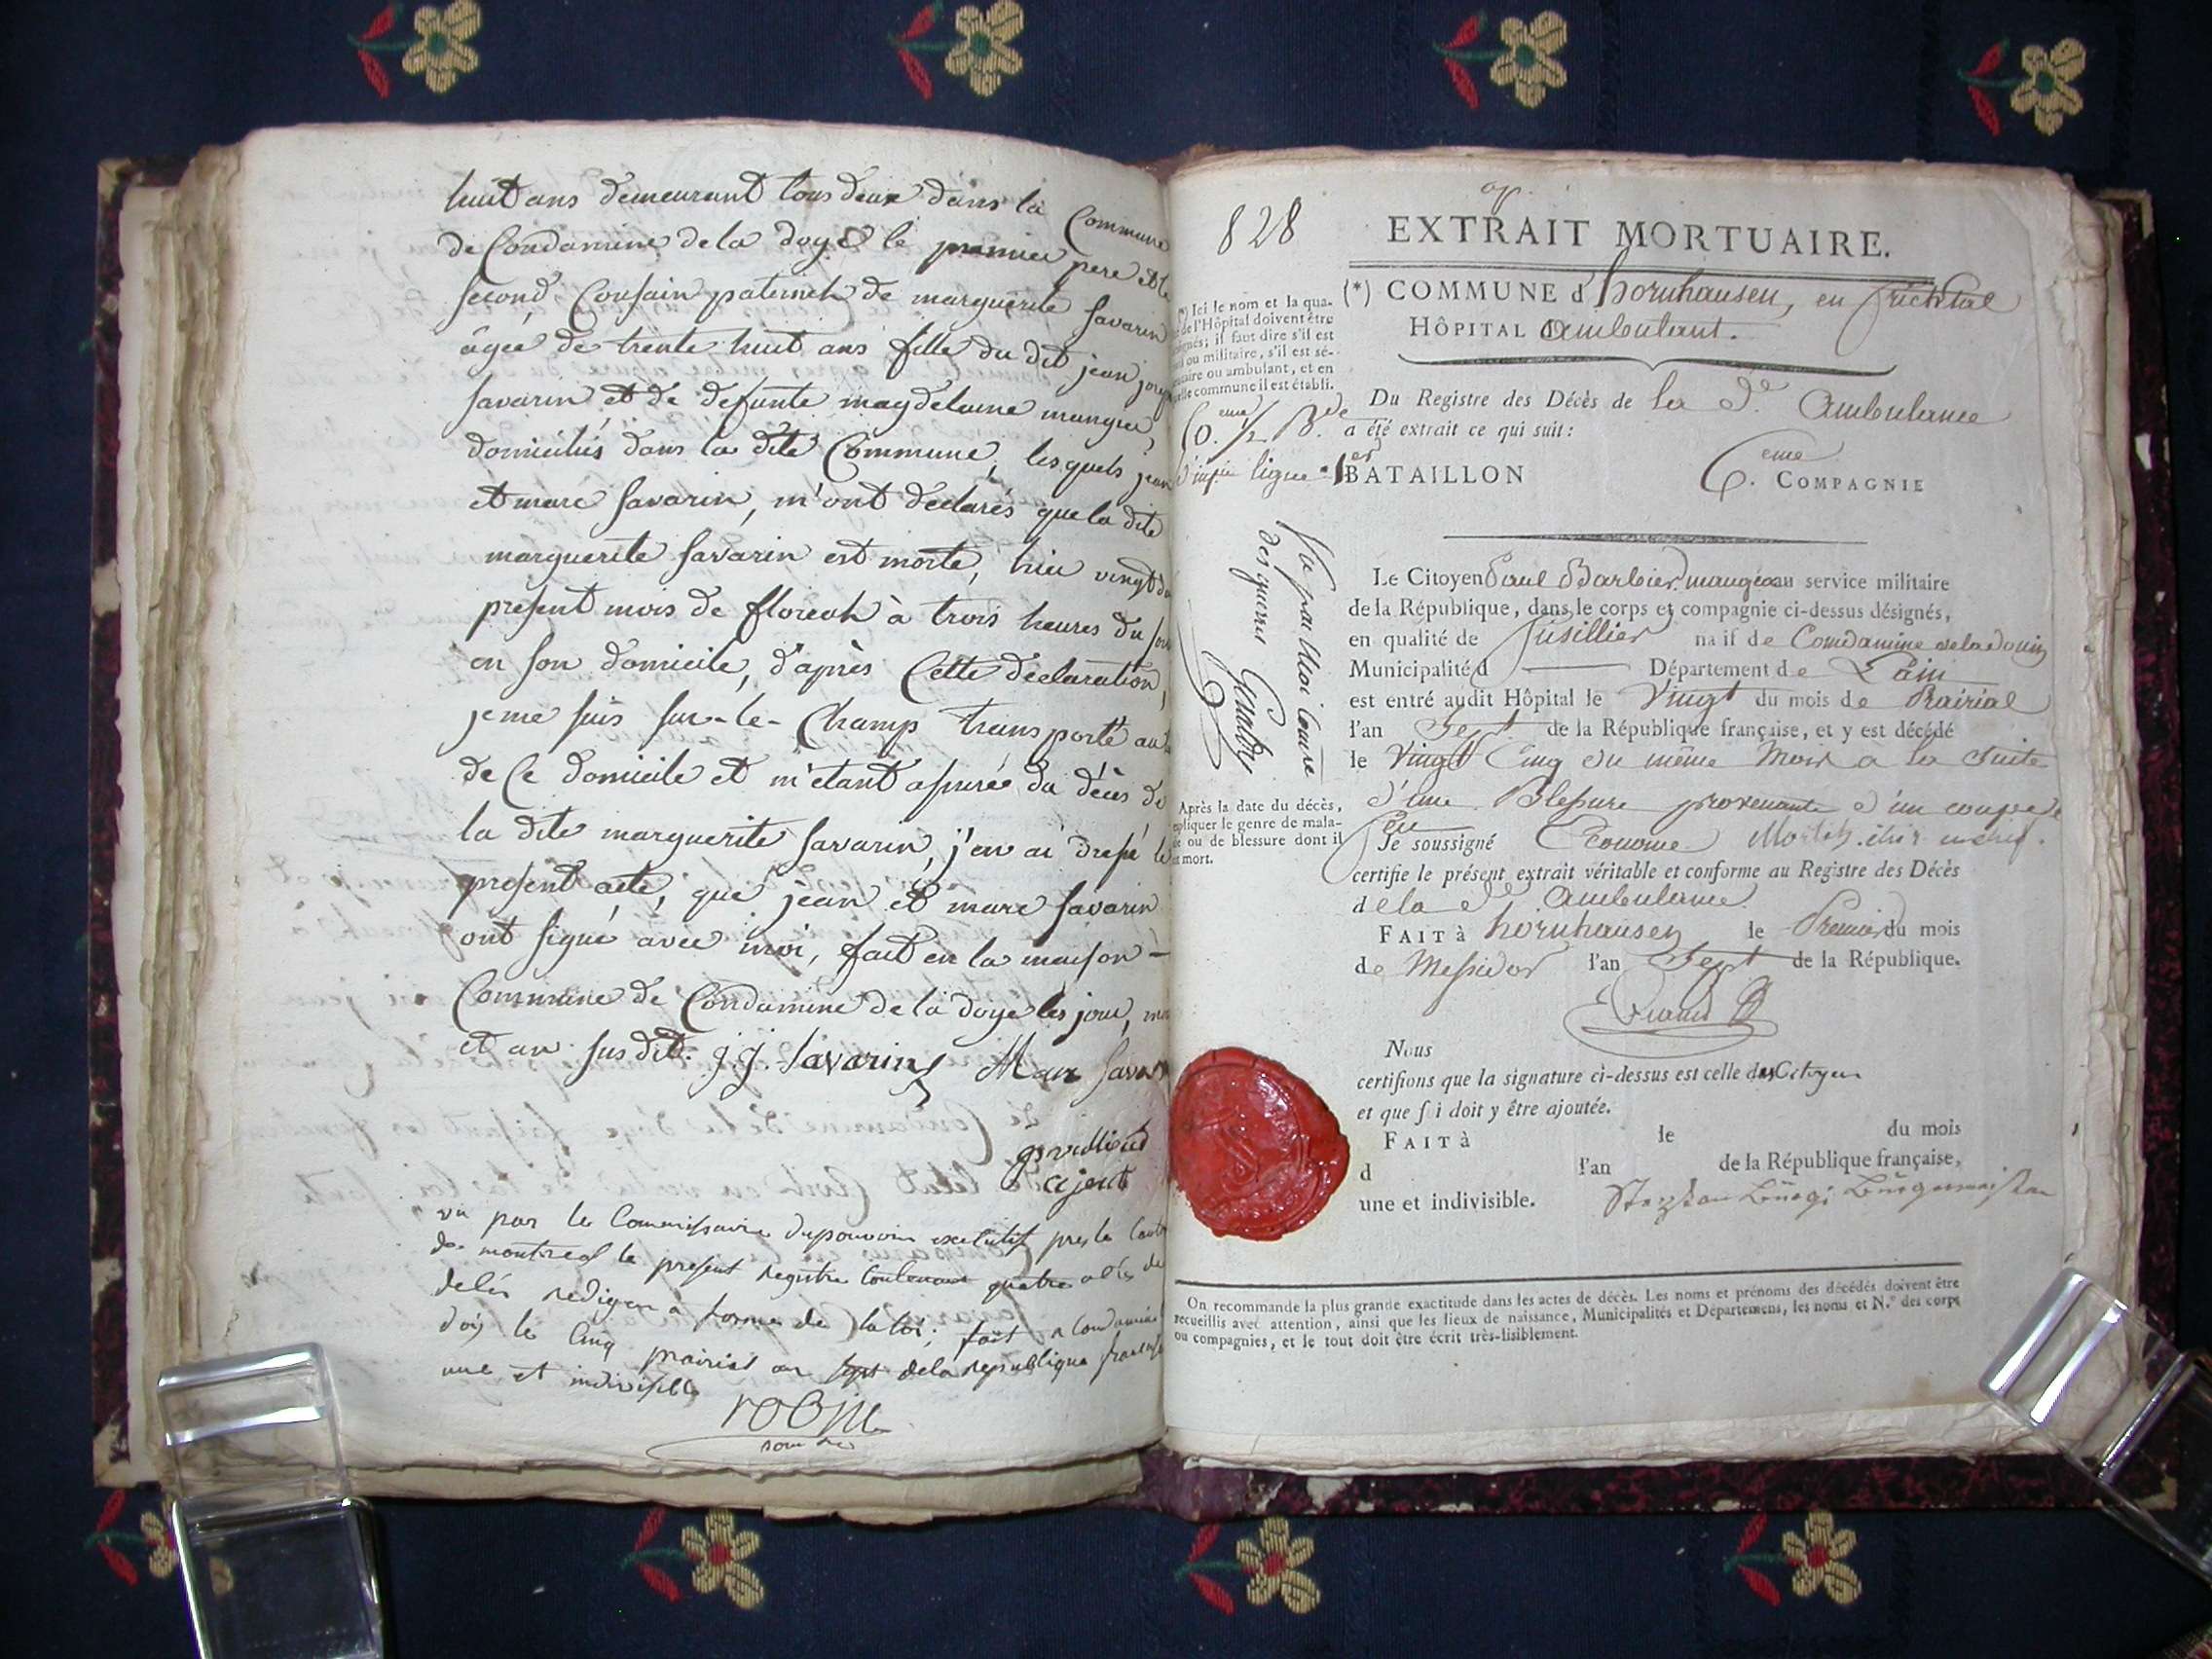 huit ans demeurant tous deux dans la Commune
de Condamine de la doye le premier pere et le
second, Cousain paternele de marguerite Savarin
âgée de trente huit ans fille du dit jean joseph
Savarin et de defunte magdelaine mangier,
domiciliés dans la dite Commune, lesquels jean
et marc Savarin, m'ont declarés que la dite
marguerite Savarin est morte, hier vingt du
présent mois de floreal à trois heures du soir
en son domicile, d'après Cette déclaration,
je me suis sur-le-Champ transporté au
de Ce domicile et m'étant assurée du décès de
la dite marguerite Savarin, j'en ai dressé le
présent acte, que jean et marc Savarin
ont signé avec moi, fait en la maison-
Commune de Condamine de la doye les jour, mois
et an sus dit. j.j. Savarin Marc Savarin
ajent
vu par le Commissaire du pouvoir executif pres le Canton
de montreal le present registre Contenant quatre actes de
décès rediger a forme de la loi; fait a Condamine
doy le Cinq prairial an sept de la republique francaise
une et indivisible
robin
828
EXTRAIT MORTUAIRE.
(*) COMMUNE d'hornhausen, en frichtal
HÔPITAL Ambulant.
(*) Ici le nom et la qua-
de l'Hôpital doivent être
; il faut dire s'il est
ou militaire, s'il est sé-
ou ambulant, et en
commune il est établi.
Du Registre des Décès de la de. Ambulance
a été extrait ce qui suit:
eme 1/2 B.de
d'inf.ie ligne 1er BATAILLON 6.eme COMPAGNIE
Vu par Moi Comre
des guerres
Le Citoyen Paul Barbier mangea au service militaire
de la République, dans le corps et compagnie ci-dessus désignés,
en qualité de fusillier natif de Comdamine de la
Municipalité d Département de L'ain
est entré audit Hôpital le Vingt du mois de Prairial
l'an Sept de la République française, et y est décédé
le Vingt Cinq du même Mois a la Suite
d'une Blessure provenante d'un coup de
feu
Après la date du décès,
expliquer le genre de mala-
die ou de blessure dont il
est mort.
Je soussigné Econome
certifie le présent extrait véritable et conforme au Registre des Décès
de la de Ambulance
FAIT à hornhausen le Premier du mois
de Messidor l'an Sept de la République.
Nous
certifions que la signature ci-dessus est celle du Citoyen
et que foi doit y être ajoutée.
FAIT à le du mois
d l'an de la République française,
une et indivisible.
On recommande la plus grande exactitude dans les actes de décès. Les noms et prénoms des décédés doivent être
recueillis avec attention, ainsi que les lieux de naissance, Municipalités et Départemens, les noms et N.os des corps
ou compagnies, et le tout doit être écrit très-lisiblement.